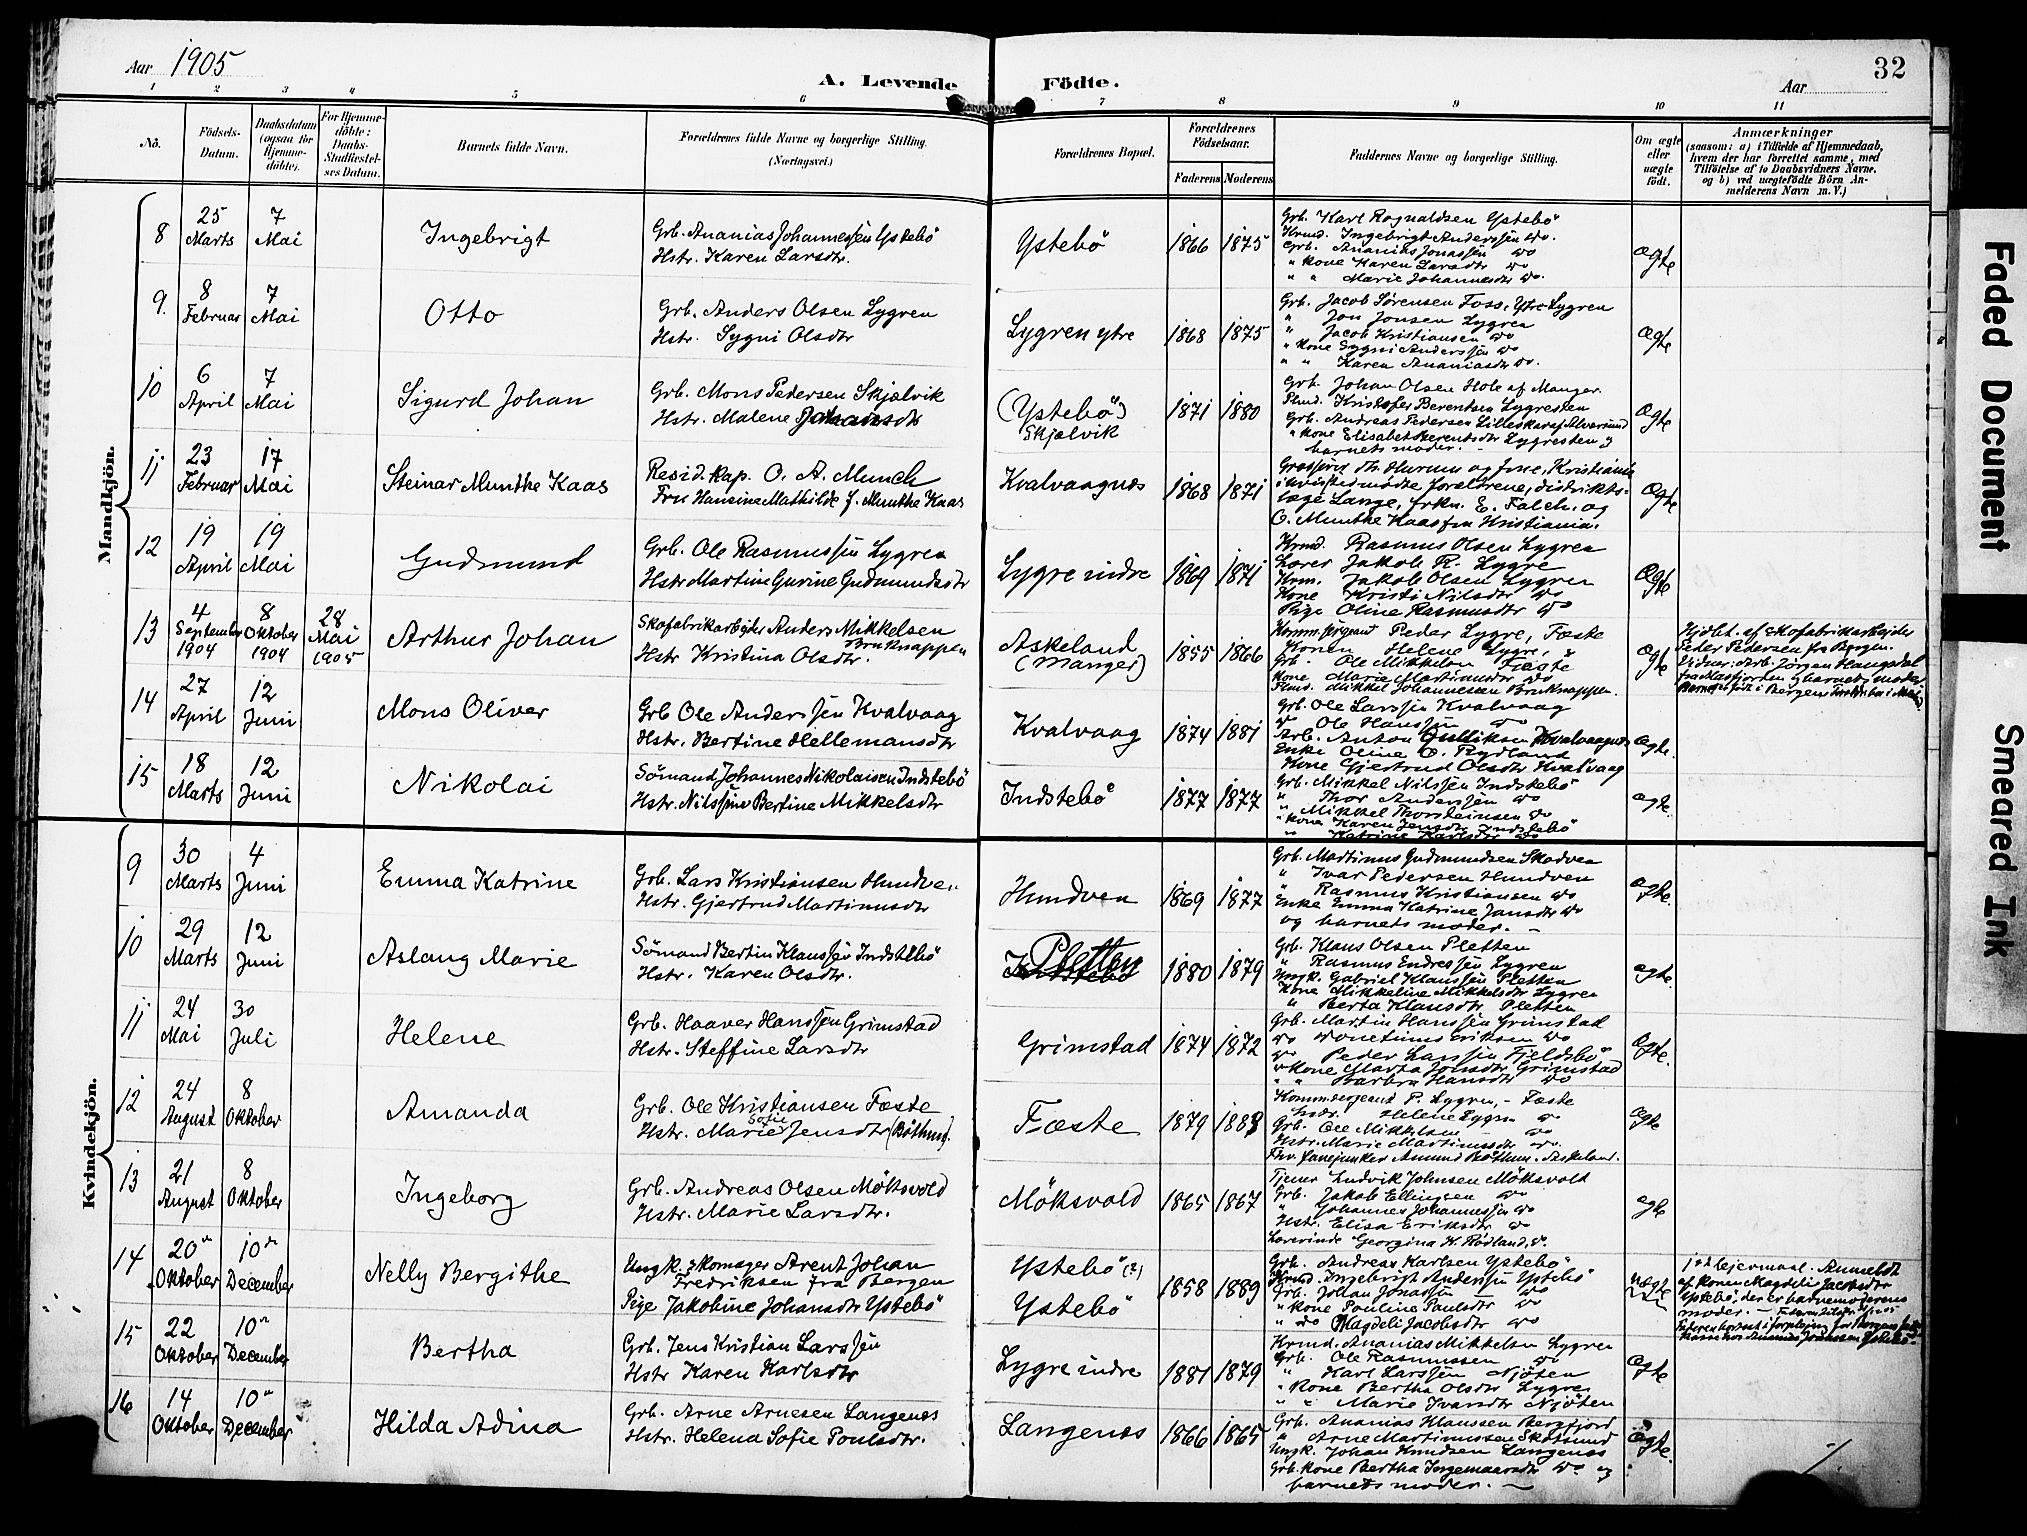 Aar 1905
A. Levende Födte.
Aar
32
1 2 3 4 5 6 7 8 9 10 11
No.
Födsels-Datum.
Daabsdatum (ogsaa for Hjemme-döbte).
For Hjemme-döbte: Daabs-Stadfæstel-ses Datum.
Barnets fulde Navn.
Forældrenes fulde Navne og borgerlige Stilling. (Næringsvei.)
Forældrenes Bopæl.
Forældrenes Födselsaar.
Faderens Moderens
Faddernes Navne og borgerlige Stilling.
Om ægte eller uægte födt.
Anmærkninger
(saasom: a) i Tilfælde af Hjemmedaab,
hvem der har forrettet samme, med
Tilföielse af to Daabsvidners Navne,
og b) ved uægtefödte Börn An-
melderens Navn m. V.)
Mandkjön.
8 25 Marts 7 Mai Ingebrigt
Grb. Ananias Johannessen Ystebö
Hstr. Karen Larsdtr.
Ystebö 1866 1875
Grb. Karl Rognaldsen Ystebö
Krmd. Ingebrigt Anderssen do.
Grb. Ananias Jonassen do
" kone Karen Larsdtr do
" " Marie Johannesdtr do.
Ægte
9. 8 Februar 7 Mai Otto
Grb. Anders Olsen Lygren
Hstr. Sygni Olsdtr
Lygren ytre 1868 1875
Grb. Jacob Sörensen Foss, Ytre Lygren
" Jon Jonsen Lygren
" Jacob Kristiansen do
" kone Sygni Anderssen do
" " Karen Ananiasdtr do.
Ægte
10 6 April 7 Mai Sigurd Johan
Grb. Mons Pedersen Skjælvik
Hstr. Malene
(Ystebö) Skjælvik 1871 1880
Grb. Johan Olsen Hole af Manger.
Kristofer Berentsen Lygresten
Grb. Andreas Pedersen Lilleskaraf Alversund
" kone Elisabet Berentsdtr Lygresten og
barnets moder.
Ægte
11 23 Februar 17 Mai Steinar Munthe Kaas
Resid. kap. O. A. Munch
Fru Hansine Mathilde f. Munthe Kaas
Kvalvaagnes 1868 1871
Hurum og frue, Kristiania
forældrene, distrikts-
læge Lange, frkn. E. Falch, og
O. Munthe Kaas fra Kristiania.
Ægte
12 19 April 19 Mai Gudmund
Grb. Ole Rasmussen Lygren
Hstr Martine Gurine Gudmundsdtr
Lygre indre 1869 1871
Krmd. Rasmus Olsen Lygren
Lærer Jakob R. Lygre
Krm. Jakob Olsen Lygren
Kone Kristi Nilsdtr do
Pige Oline Rasmusdtr do
Ægte
13 4 September 1904 8 Oktober 1904 28 Mai 1905 Arthur Johan
Skofabrikarbeider Anders Mikkelsen Bruknappen
Hstr Kristina Olsdtr.
Askeland (Manger) 1855 1866
Komm.sergeant Peder Lygre, Fæste
Konen Helene Lygre, "
Grb. Ole Mikkelsen Fæste
Kone Marie Martinusdtr do
Mikkel Johannessen Bruknappen.
Ægte
Hjdbt. af Skofabrikarbeider
Peder Pedersen fra Bergen.
Vidner: Arb. Jörgen Haugsdal
fra Masfjorden og barnets moder
14 27 April 12 Juni Mons Oliver
Grb Ole Anderssen Kvalvaag
Hstr. Bertine Hellemansdtr
Kvalvaag 1874 1881
Grb. Ole Larssen Kvalvaag
do Ole Hanssen do
Arb. Anton Gulliksen Kvalvaagnes
Enke Oline O. Rydland
Kone Gjertrud Olsdtr Kvalvaag
Ægte
15 18 Marts 12 Juni Nikolai
Sömand Johannes Nikolaisen Indstebö
Hstr. Nilssine Bertine Mikkelsdtr
Indstebö 1877 1877
Grb. Mikkel Nilssen Indstebö
" Thor Anderssen do
" Mikkel Thorsteinsen do
" kone Karen Jensdtr Indstebö
" Katrine Karlsdtr do
ægte.
Kvindekjön.
9 30 Marts 4 Juni Emma Katrine
Grb. Lars Kristiansen Hundven
Hstr. Gjertrud Martinusdtr
Hundven 1869 1877
Grb. Martinus Gudmundsen Skodven
" Ivar Pedersen Hundven
" Rasmus Kristiansen do
Enke Emma Katrine Jansdtr do
og barnets moder.
ægte.
10 29 Marts 12 Juni Aslaug Marie
Sömand Bertin Klaussen Indstebö
Hstr. Karen Olsdtr.
Pletten 1880 1879
Grb. Klaus Olsen Pletten
" Rasmus Endressen Lygren
Ungk. Gabriel Klaussen Pletten
Kone Mikkeline Mikkelsdtr Lygren
" Berta Klausdtr Pletten
ægte.
11 24 Mai 30 Juli Helene
Grb. Haaver Hanssen Grimstad
Hstr. Steffine Larsdtr
Grimstad 1874 1872
Grb. Martin Hanssen Grimstad
do Eriksen do
do Peder Larssen Fjeldsbö
" kone Marta Jonsdtr Grimstad
" " Barbra Hansdtr do
Ægte.
12 24 August 8 Oktober Amanda
Grb. Ole Kristiansen Fæste
Hstr. Marie Sofie Jensdtr (Böthun).
Fæste 1879 1883
Kommsergeant P. Lygren, - Fæste
Hstr. Helene Lygren do
Grb. Ole Mikkelsen do
Hstr. Marie Martinusdtr do.
Fhv. fanejunker Amund Böthun. Askeland.
Ægte
13 21 August 8 Oktober Ingeborg
Grb. Andreas Olsen Möksvold
Hstr. Marie Larsdtr.
Möksvold 1865 1867
Tjener Ludvik Johnsen Möksvold
Grb. Jakob Ellingsen do
" Johannes Johannessen do
Hstr. Elisa Eriksdtr do
Lærerinde Georgina H. Rödland, do.
ægte
14 20de Oktober 10de December Nelly Bergithe
Ungk. skomager Arent Johan
Fredriksen fra Bergen
Pige Jakobine Johansdtr Ystebö
Ystebö (?)
Ystebö 1858 1889
Grb. Andreas Karlsen Ystebö
Krmd. Ingebrigt Anderssen Ystebö
Grb. Johan Jonassen do
" kone Pouline Paulsdtr do
" do Magdeli Jacobsdtr do
uægte
1 + 2 leiermaal. Anmeldt
af konen Magdeli Jacobsdtr
Ystebö, der er barnemoderens
moder.
15 22 Oktober 10de December Bertha
Grb. Jens Kristian Larssen
Hstr Karen Karlsdtr
Lygre indre 1881 1879
Krmd. Ananias Mikkelsen Lygren
Grb. Ole Rasmussen do
" Karl Larssen Njöten
" kone Bertha Olsdtr Lygren
" " Marie Ivarsdtr Njöten
Ægte
16 14 Oktober 10de December Hilda Adina
Grb. Arne Arnesen Langenes
Hstr. Helena Sofie Poulsdtr.
Langenes 1866 1865
Grb. Ananias Klaussen Bergfjord
" Arne Martinussen Skotsund
Ungk. Johan Knudsen Langenes
Grb. kone Bertha Ingemaarsdtr do og
barnets moder.
Ægte.
Faded Document
Smeared Ink